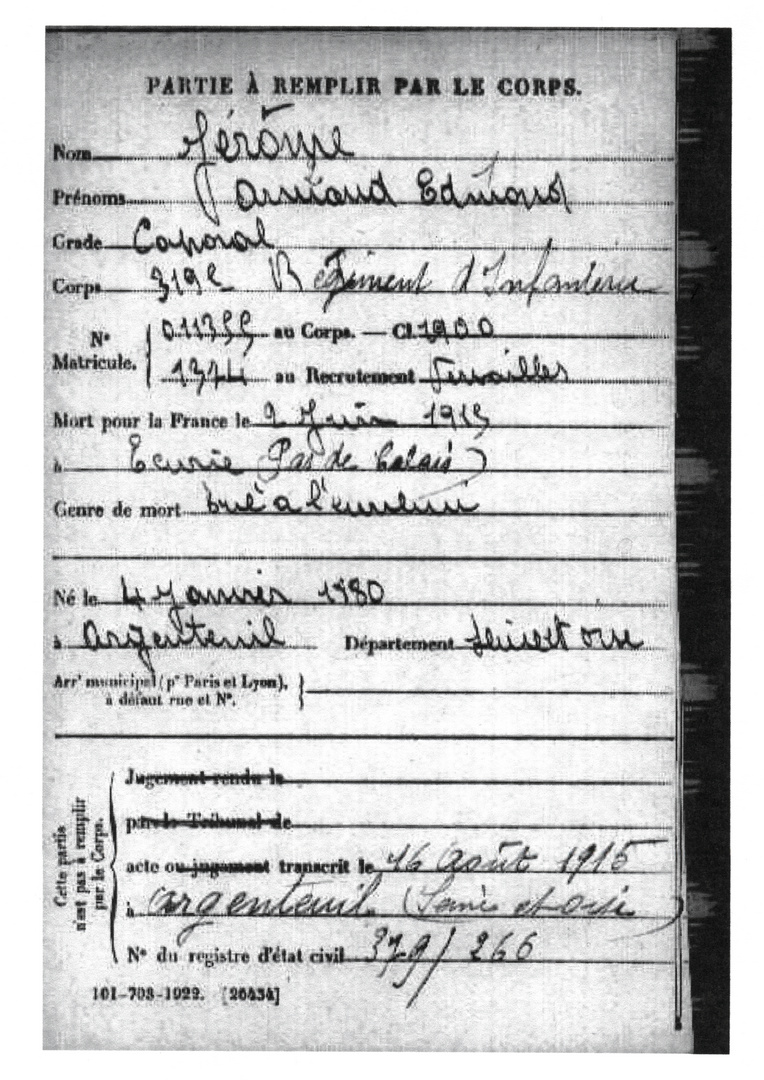 PARTIE À REMPLIR PAR LE CORPS.
Nom Jérôme
Prénoms Armand Edmond
Grade Caporal
Corps 319e Régiment d'Infanterie
N° Matricule. 011355 au Corps. — Cl. 1900
1374 au Recrutement Versailles
Mort pour la France le 2 Juin 1915
à Ecurie (Pas de Calais)
Genre de mort tué à l'ennemi
Né le 4 Janvier 1880
à Argenteuil Département Seine et Oise
Arrt municipal (pr Paris et Lyon),
à défaut rue et N°.
Cette partie n'est pas à remplir par le Corps.
Jugement rendu le
par le Tribunal de
acte ou jugement transcrit le 16 Août 1915
à Argenteuil (Seine et Oise)
N° du registre d'état civil 379/266
101-708-1922. [26434]